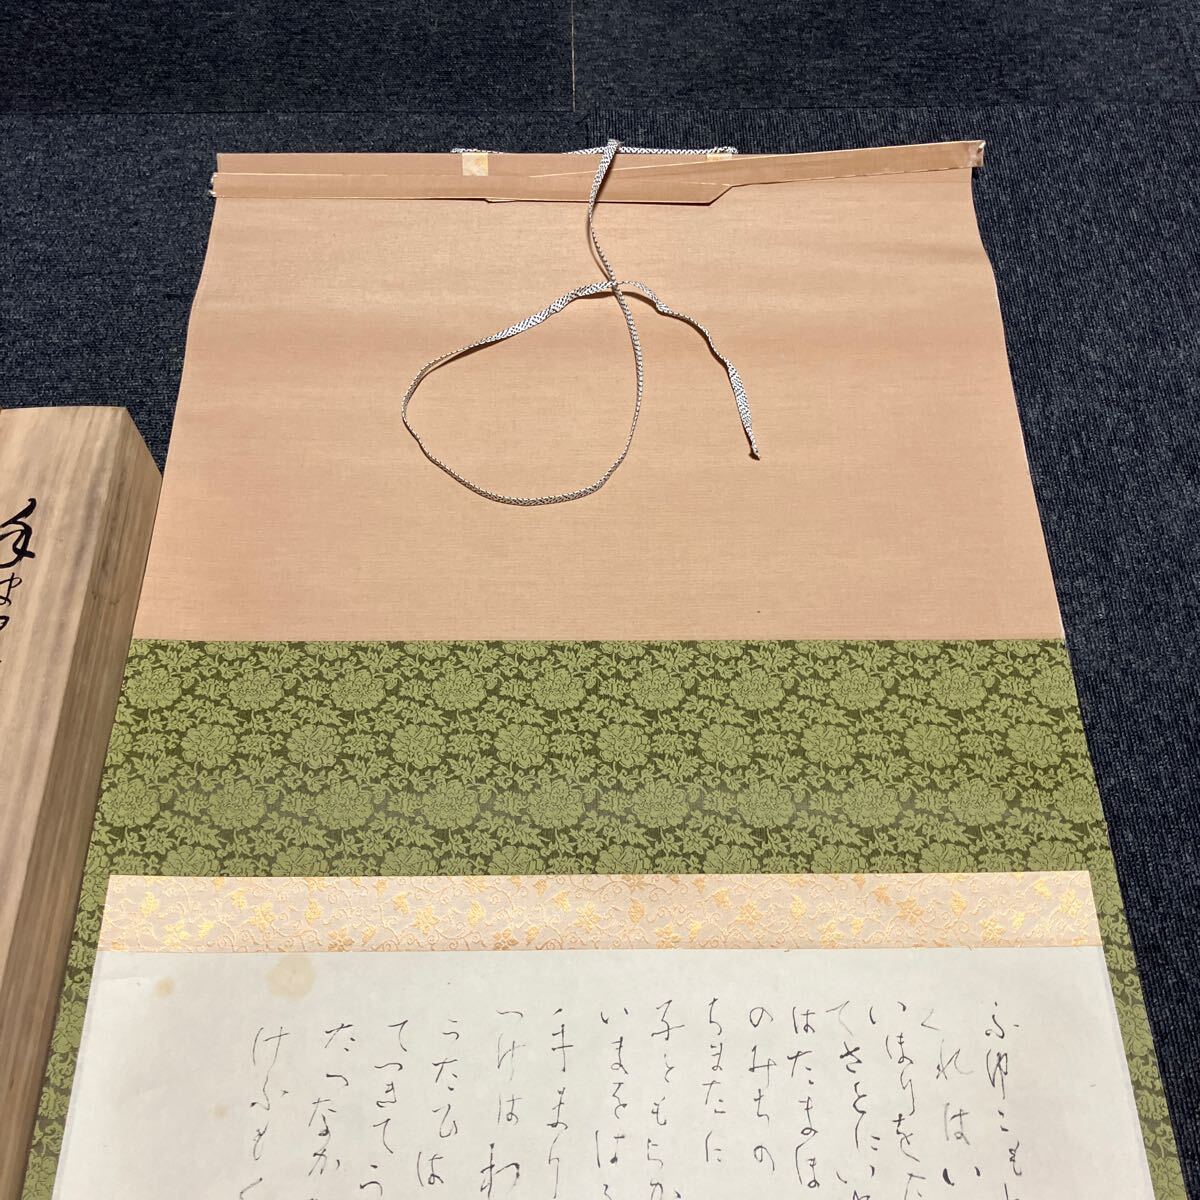 ふゆこも
くれはい
いほりをた
てさとにい
はたまほ
のみちの
ちまたに
子ともらか
いまをは
手まり
つけはわ
うたひは
てつきてう
たつなか
けふもく
手まり